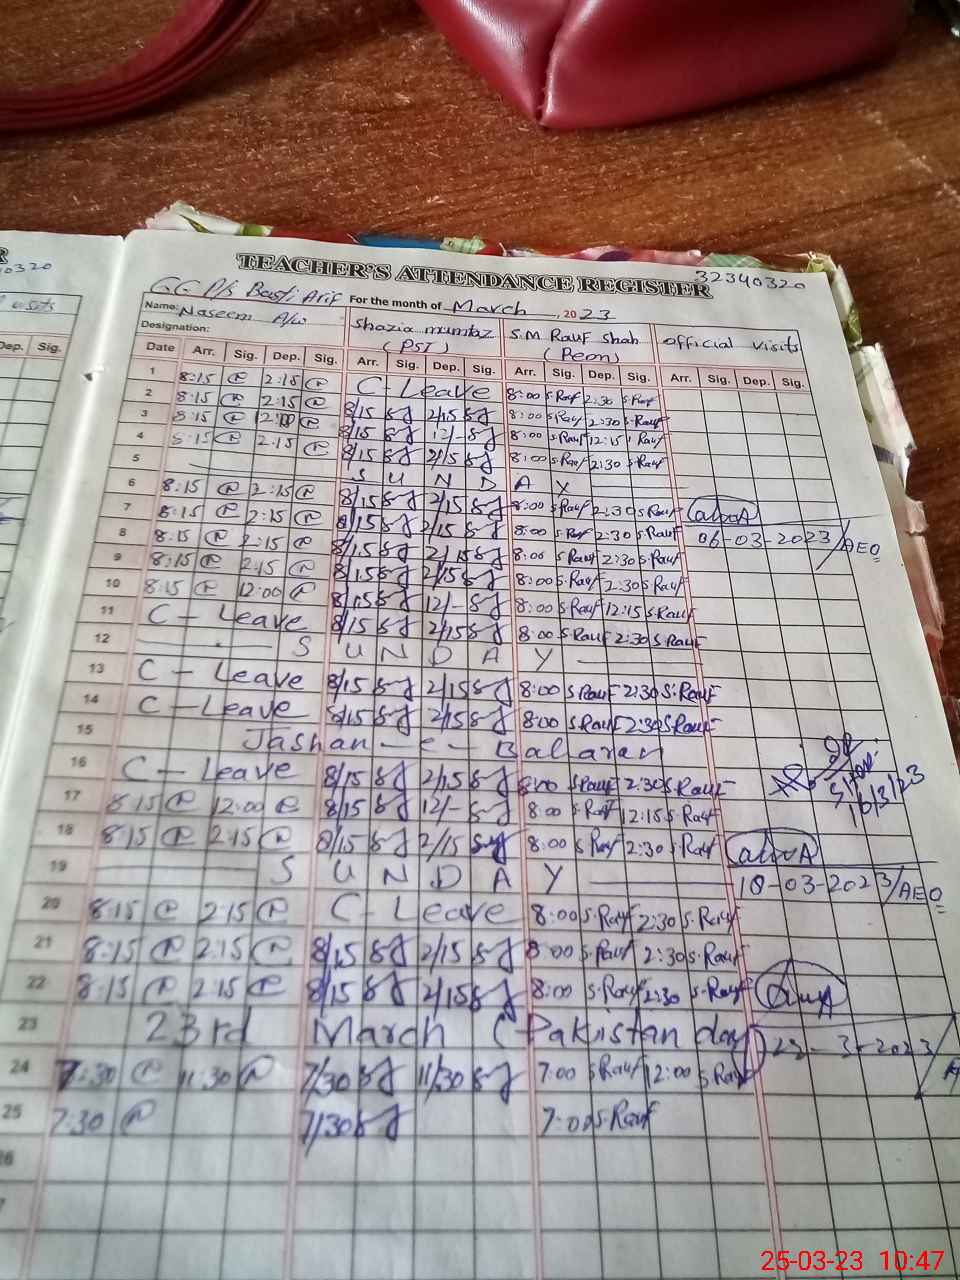 TEACHER'S ATTENDANCE REGISTER 32340320
GG P/s Basti Arif For the month of March, 2023
Name: Naseem A/w Shazia mumtaz S.M Rauf Shah official visits
Designation: (PST) (Peon)
Date Arr. Sig. Dep. Sig. Arr. Sig. Dep. Sig. Arr. Sig. Dep. Sig. Arr. Sig. Dep. Sig.
1 8:15 2:15 C-Leave 8:00 S.Rauf 2:30 S.Rauf
2 8:15 2:15 8/15 2/15 8:00 S.Rauf 2:30 S.Rauf
3 8:15 8/15 12/- 8:00 S.Rauf 12:15 S.Rauf
4 8:15 2:15 8/15 2/15 8:00 S.Rauf 2:30 S.Rauf
5 S U N D A Y
6 8:15 2:15 8/15 2/15 8:00 S.Rauf 2:30 S.Rauf
7 8:15 2:15 8/15 2/15 8:00 S.Rauf 2:30 S.Rauf 06-03-2023/AEO
8 8:15 2:15 8/15 2/15 8:00 S.Rauf 2:30 S.Rauf
9 8:15 2:15 8/15 2/15 8:00 S.Rauf 2:30 S.Rauf
10 8:15 12:00 8/15 12/- 8:00 S.Rauf 12:15 S.Rauf
11 C-Leave 8/15 2/15 8:00 S.Rauf 2:30 S.Rauf
12 S U N D A Y
13 C-Leave 8/15 2/15 8:00 S.Rauf 2:30 S.Rauf
14 C-Leave 8/15 2/15 8:00 S.Rauf 2:30 S.Rauf
15 Jashan-e-Bahaaran
16 C-Leave 8/15 2/15 8:00 S.Rauf 2:30 S.Rauf 16/3/23
17 8:15 12:00 8/15 12/- 8:00 S.Rauf 12:15 S.Rauf
18 8:15 2:15 8/15 2/15 8:00 S.Rauf 2:30 S.Rauf
19 S U N D A Y 18-03-2023/AEO
20 8:15 2:15 C-Leave 8:00 S.Rauf 2:30 S.Rauf
21 8:15 2:15 8/15 2/15 8:00 S.Rauf 2:30 S.Rauf
22 8:15 2:15 8/15 2/15 8:00 S.Rauf 2:30 S.Rauf
23 23rd March (Pakistan day) -3-2023/
24 7:30 11:30 7/30 11/30 7:00 S.Rauf 12:00 S.Rauf
25 7:30 7/30 7:00 S.Rauf
26
25-03-23 10:47